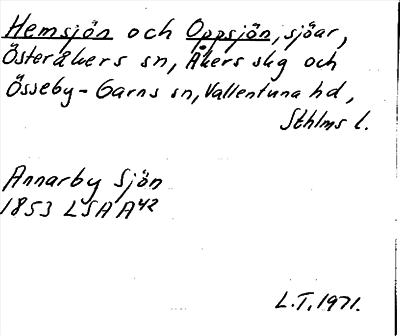 Hemsjön och Oppsjön, sjöar,
Österåkers sn, Åkers skg och
Össeby-Garns sn, Vallentuna hd,
Sthlms l.
Annarby Sjön
1853 LSA A42
L.T. 1971.